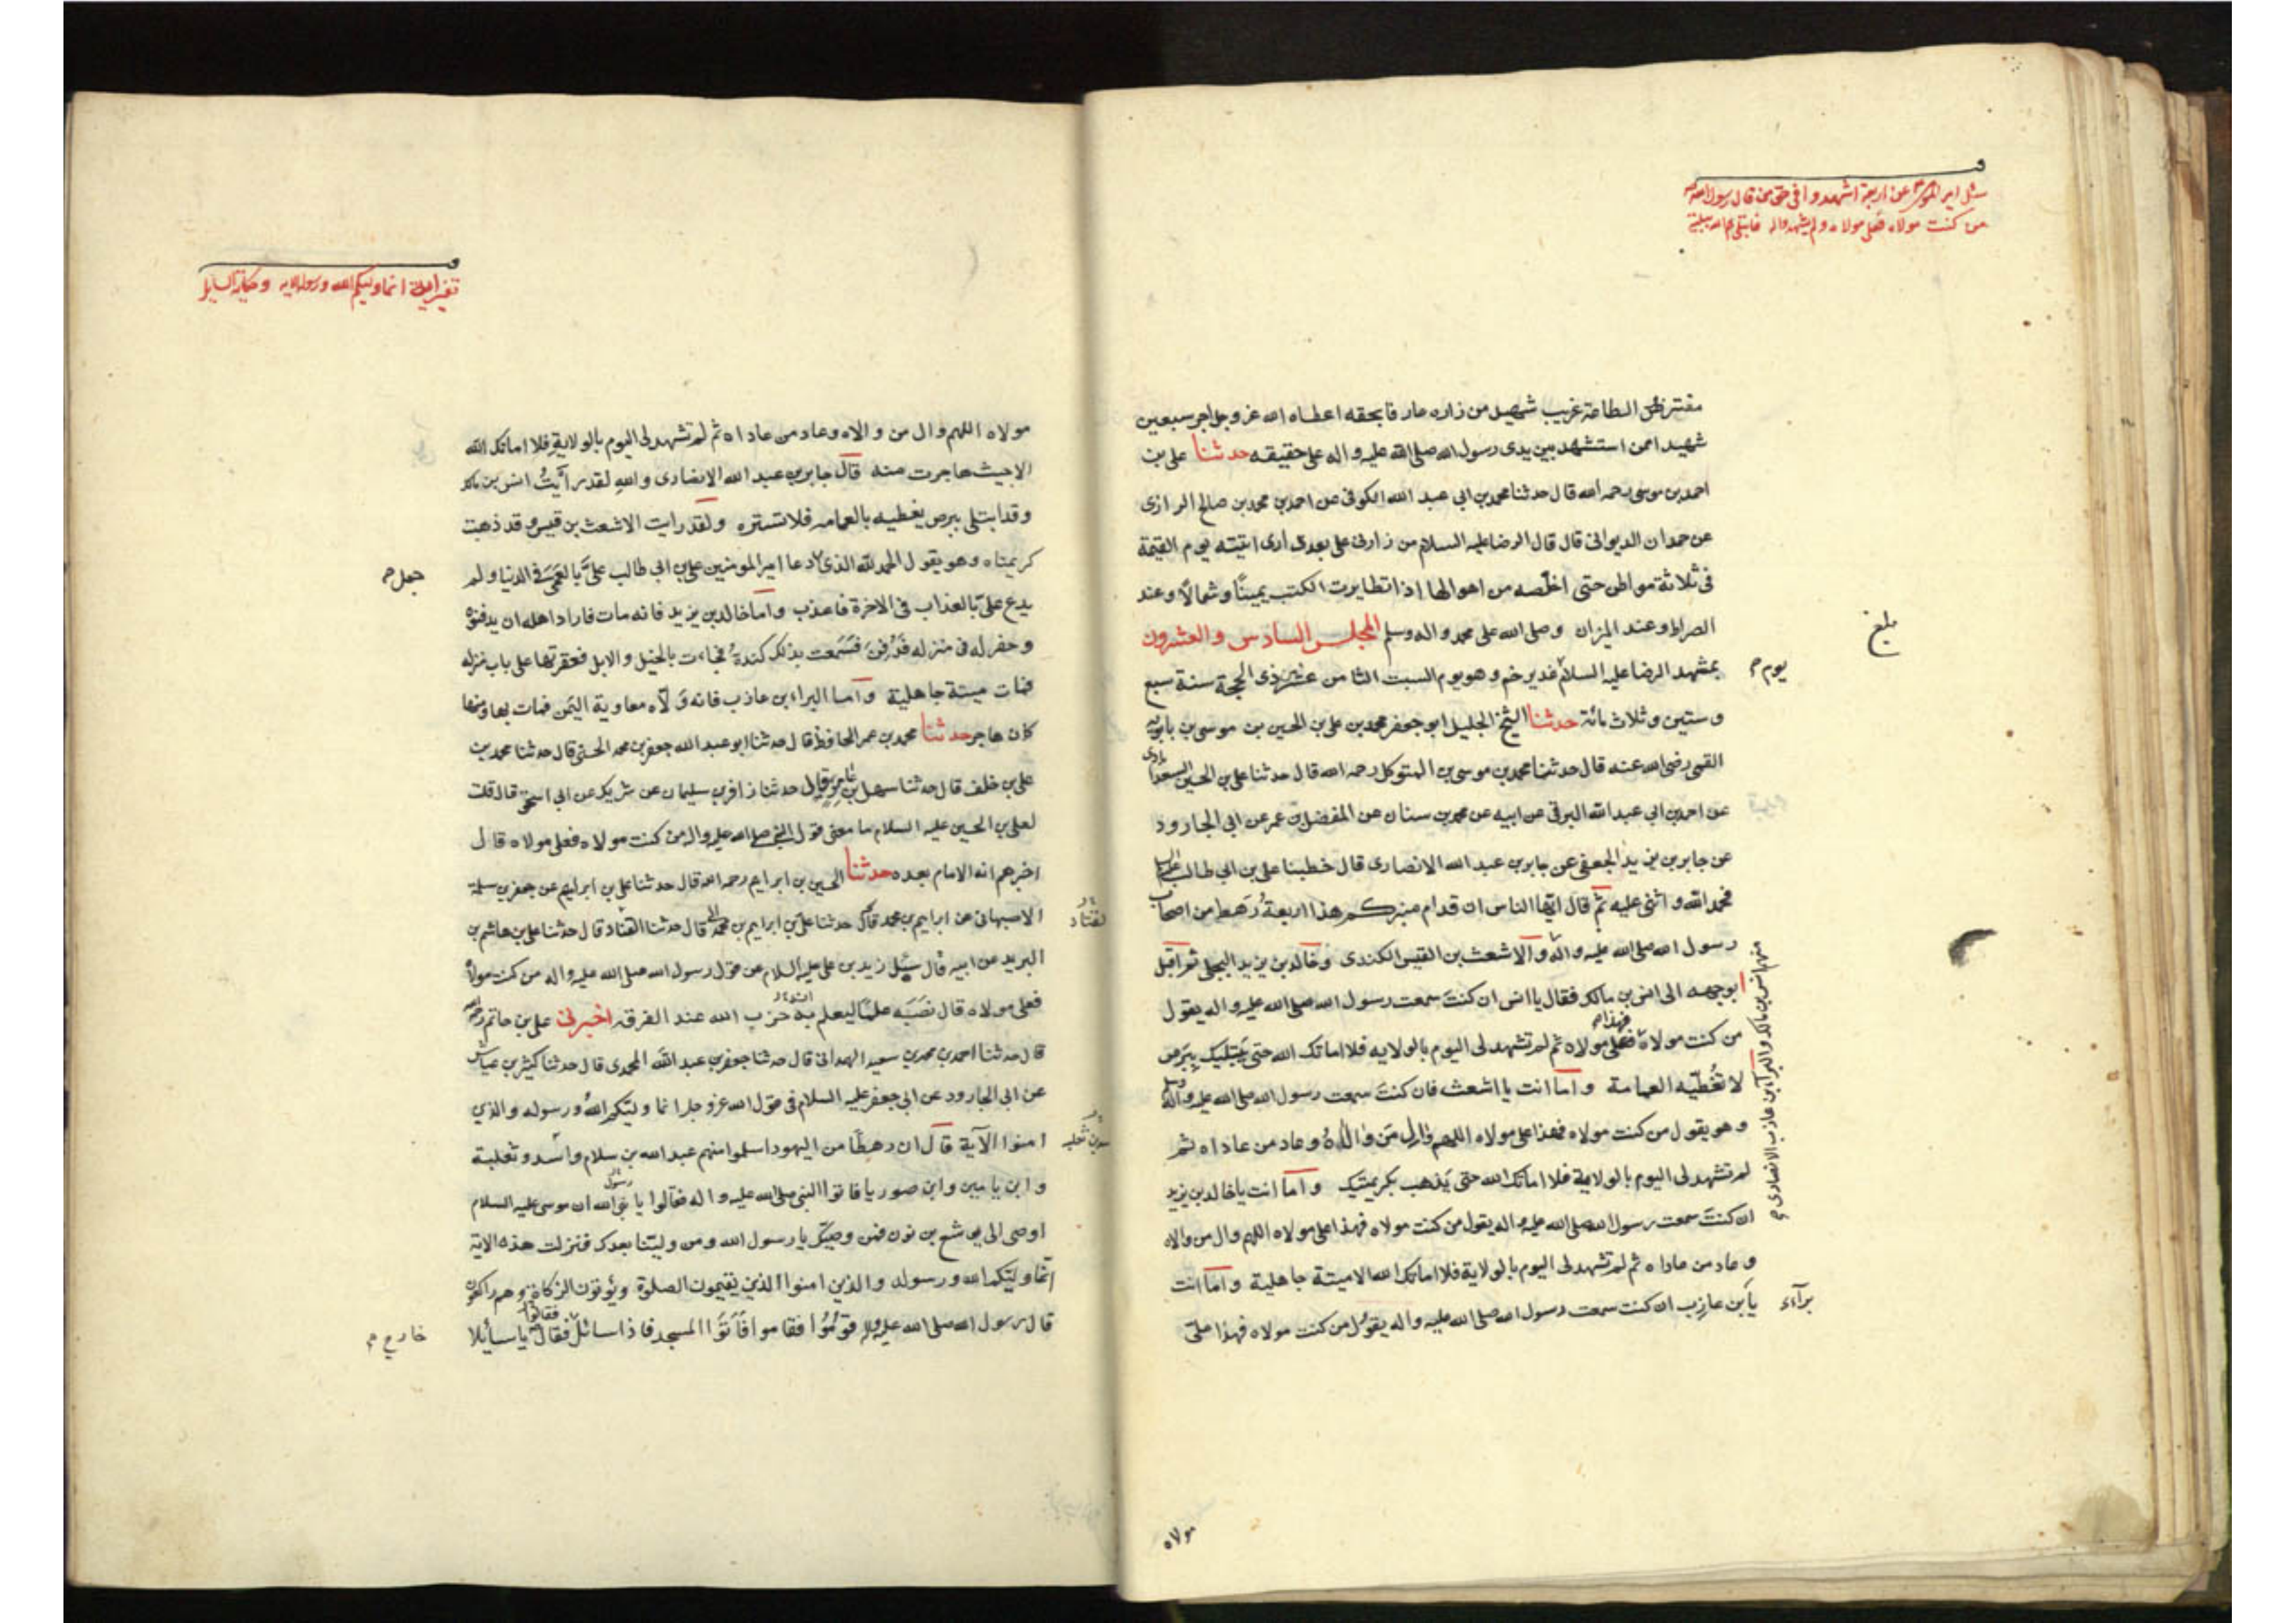 سئل امير المؤمنين عن اربعة اشهدوا في حقي من قال رسول الله
من كنت مولاه فعلي مولاه ولم يشهدوا له فابتلي كل ببلية
مفترض الطاعة غريب شهيد من زاره عارفا بحقه اعطاه الله عز وجل اجر سبعين
شهيد ا ممن استشهد بين يدى رسول الله صلى الله عليه واله على حقيقه حدثنا على بن
احمد بن موسى رحمه الله قال حدثنا محمد بن ابي عبد الله الكوفى عن احمد بن محمد بن صالح الرازى
عن حمدان الديوانى قال قال الرضا عليه السلام من زارنى على بعد دارى اتيته يوم القيمة
فى ثلاثة مواطن حتى اخلصه من اهوالها اذا تطايرت الكتب يمينًا وشمالًا وعند
الصراط وعند الميزان وصلى الله على محمد واله وسلم المجلس السادس والعشرون
بلغ
بمشهد الرضا عليه السلام غدير خم وهو يوم السبت الثامن عشر ذى الحجة سنة سبع
يوم
وستين وثلاث مائة حدثنا الشيخ الجليل ابو جعفر محمد بن على بن الحسين بن موسى بن بابويه
القمى رضى الله عنه قال حدثنا محمد بن موسى بن المتوكل رحمه الله قال حدثنا على بن الحسين السعدابادى
عن احمد بن ابى عبد الله البرقى عن ابيه عن محمد بن سنان عن المفضل بن عمر عن ابى الجارود
عن جابر بن يزيد الجعفى عن جابر بن عبد الله الانصارى قال خطبنا على بن ابى طالب عليه السلام
فحمد الله واثنى عليه ثم قال ايها الناس ان قدام منبركم هذا اربعة رهط من اصحاب
رسول الله صلى الله عليه واله والاشعث بن القيس الكندى وخالد بن يزيد البجلى ثم اقبل
منهم انس بن مالك والبراء بن عازب الانصارى
بوجهه الى انس بن مالك فقال يا انس ان كنت سمعت رسول الله صلى الله عليه واله يقول
فهذا
من كنت مولاه فعلى مولاه ثم لم تشهد لى اليوم بالولايه فلا اماتك الله حتى يبتليك ببرص
لا تغطيه العمامة واما انت يا اشعث فان كنت سمعت رسول الله صلى الله عليه واله
وهو يقول من كنت مولاه فهذا على مولاه اللهم وال من والاه وعاد من عاداه ثم
لم تشهد لى اليوم بالولاية فلا اماتك الله حتى يذهب بكريمتيك واما انت يا خالد بن يزيد
ان كنت سمعت رسول الله صلى الله عليه واله يقول من كنت مولاه فهذا على مولاه اللهم وال من والاه
وعاد من عاداه ثم لم تشهد لى اليوم بالولاية فلا اماتك الله الا ميتة جاهلية واما انت
يا بن عازب ان كنت سمعت رسول الله صلى الله عليه واله يقول من كنت مولاه فهذا على
براء
مولاه
تفسير اية انما وليكم الله ورسوله الايه وحكاية السايل
مولاه اللهم وال من والاه وعاد من عاداه ثم لم تشهد لى اليوم بالولاية فلا اماتك الله
الا حيث هاجرت منه قال جابر بن عبد الله الانصارى والله لقد رايت انس بن مالك
وقد ابتلى ببرص يغطيه بالعمامه فلا تستره ولقد رايت الاشعث بن قيس وقد ذهبت
كريمتاه وهو يقول الحمد لله الذى دعا امير المومنين على بن ابى طالب على بالعمى فى الدنيا ولم
جعل
يدع على بالعذاب فى الاخرة فاعذب واما خالد بن يزيد فانه مات فاراد اهله ان يدفنوه
وحفر له فى منزله فدفن فسمعت بذلك كندة فجاءت بالخيل والابل فعقرتها على باب منزله
فمات ميتة جاهلية واما البراء بن عازب فانه ولاه معاوية اليمن فمات بها ومنها
كان هاجر حدثنا محمد بن عمر الحافظ قال حدثنا ابو عبد الله جعفر بن محمد الحسنى قال حدثنا محمد بن
على بن خلف قال حدثنا سهل بن عامر قال حدثنا زافر بن سليمان عن شريك عن ابى اسحق قال قلت
لعلى بن الحسين عليه السلام ما معنى قول النبى صلى الله عليه واله من كنت مولاه فعلى مولاه قال
اخبرهم انه الامام بعده حدثنا الحسين بن ابراهيم رحمه الله قال حدثنا على بن ابراهيم عن جعفر بن سلمة
الاصبهانى عن ابراهيم بن محمد قال حدثنا على بن ابراهيم بن محمد قال حدثنا القناد قال حدثنا على بن هاشم بن
القناد
البريد عن ابيه قال سئل زيد بن على عليه السلام عن قول رسول الله صلى الله عليه واله من كنت مولاه
فعلى مولاه قال نصبه علما ليعلم به حزب الله عند الفرقه اخبرنى على بن حاتم رحمه الله
قال حدثنا احمد بن محمد بن سعيد الهمدانى قال حدثنا جعفر بن عبد الله المحمدى قال حدثنا كثير بن عياش
عن ابى الجارود عن ابى جعفر عليه السلام فى قول الله عز وجل انما وليكم الله ورسوله والذين
امنوا الآية قال ان رهطًا من اليهود اسلموا منهم عبد الله بن سلام واسد وثعلبة
وابن يامين وابن صوريا فاتوا النبى صلى الله عليه واله فقالوا يا نبى الله ان موسى عليه السلام
رسول
اوصى الى يوشع بن نون فمن وصيك يا رسول الله ومن ولينا بعدك فنزلت هذه الاية
انما وليكم الله ورسوله والذين امنوا الذين يقيمون الصلوة ويؤتون الزكاة وهم راكعون
قال رسول الله صلى الله عليه واله قوموا فقاموا فاتوا المسجد فاذا سائل فقال يا سائلا
فقالوا
خارج